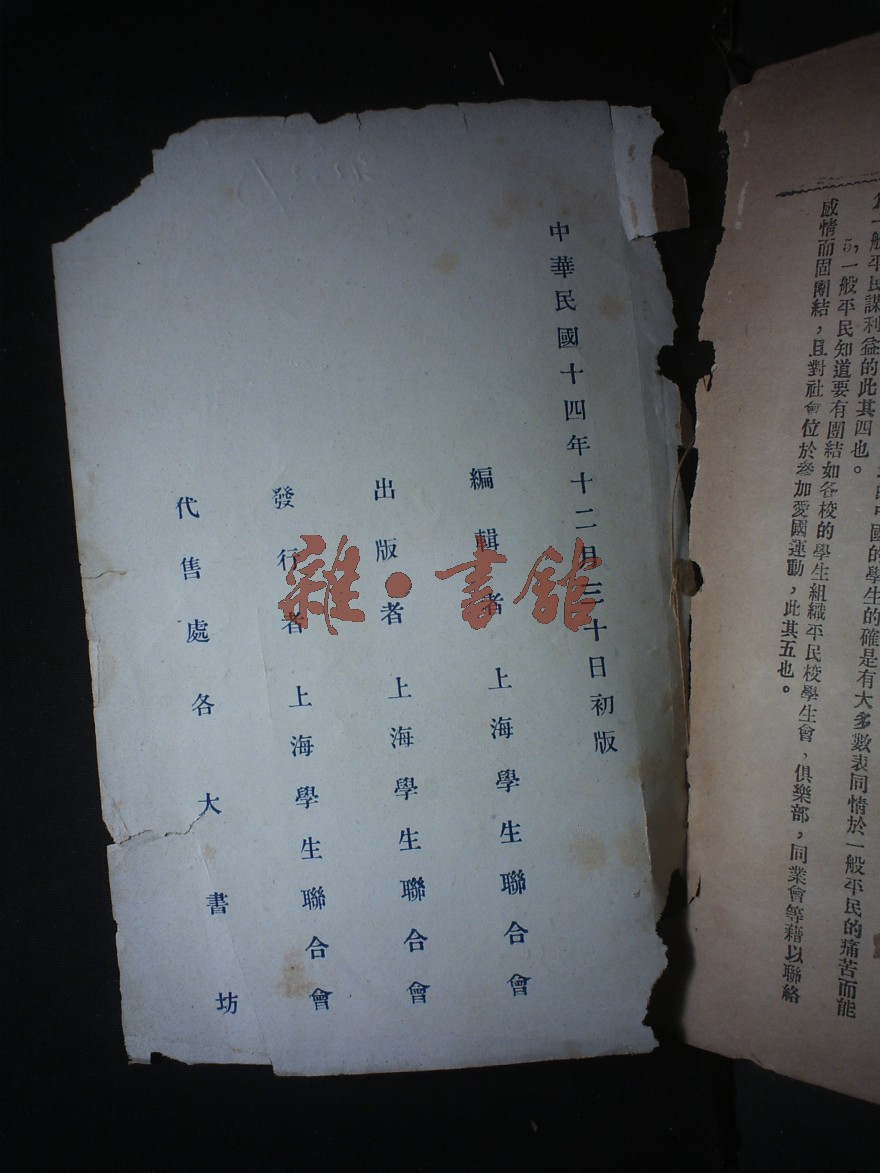 般平民謀利益的此其四也。
的學生的確是有大多數表同情於一般平民的痛苦而能
5,一般平民知道要有團結如各校的學生組織平民校學生會，俱樂部，同業會等藉以聯絡
感情而固團結，且對社會位於參加愛國運動，此其五也。
中華民國十四年十二月三十日初版
編輯者 上海學生聯合會
出版者 上海學生聯合會
發行者 上海學生聯合會
代售處各大書坊
雜·書館